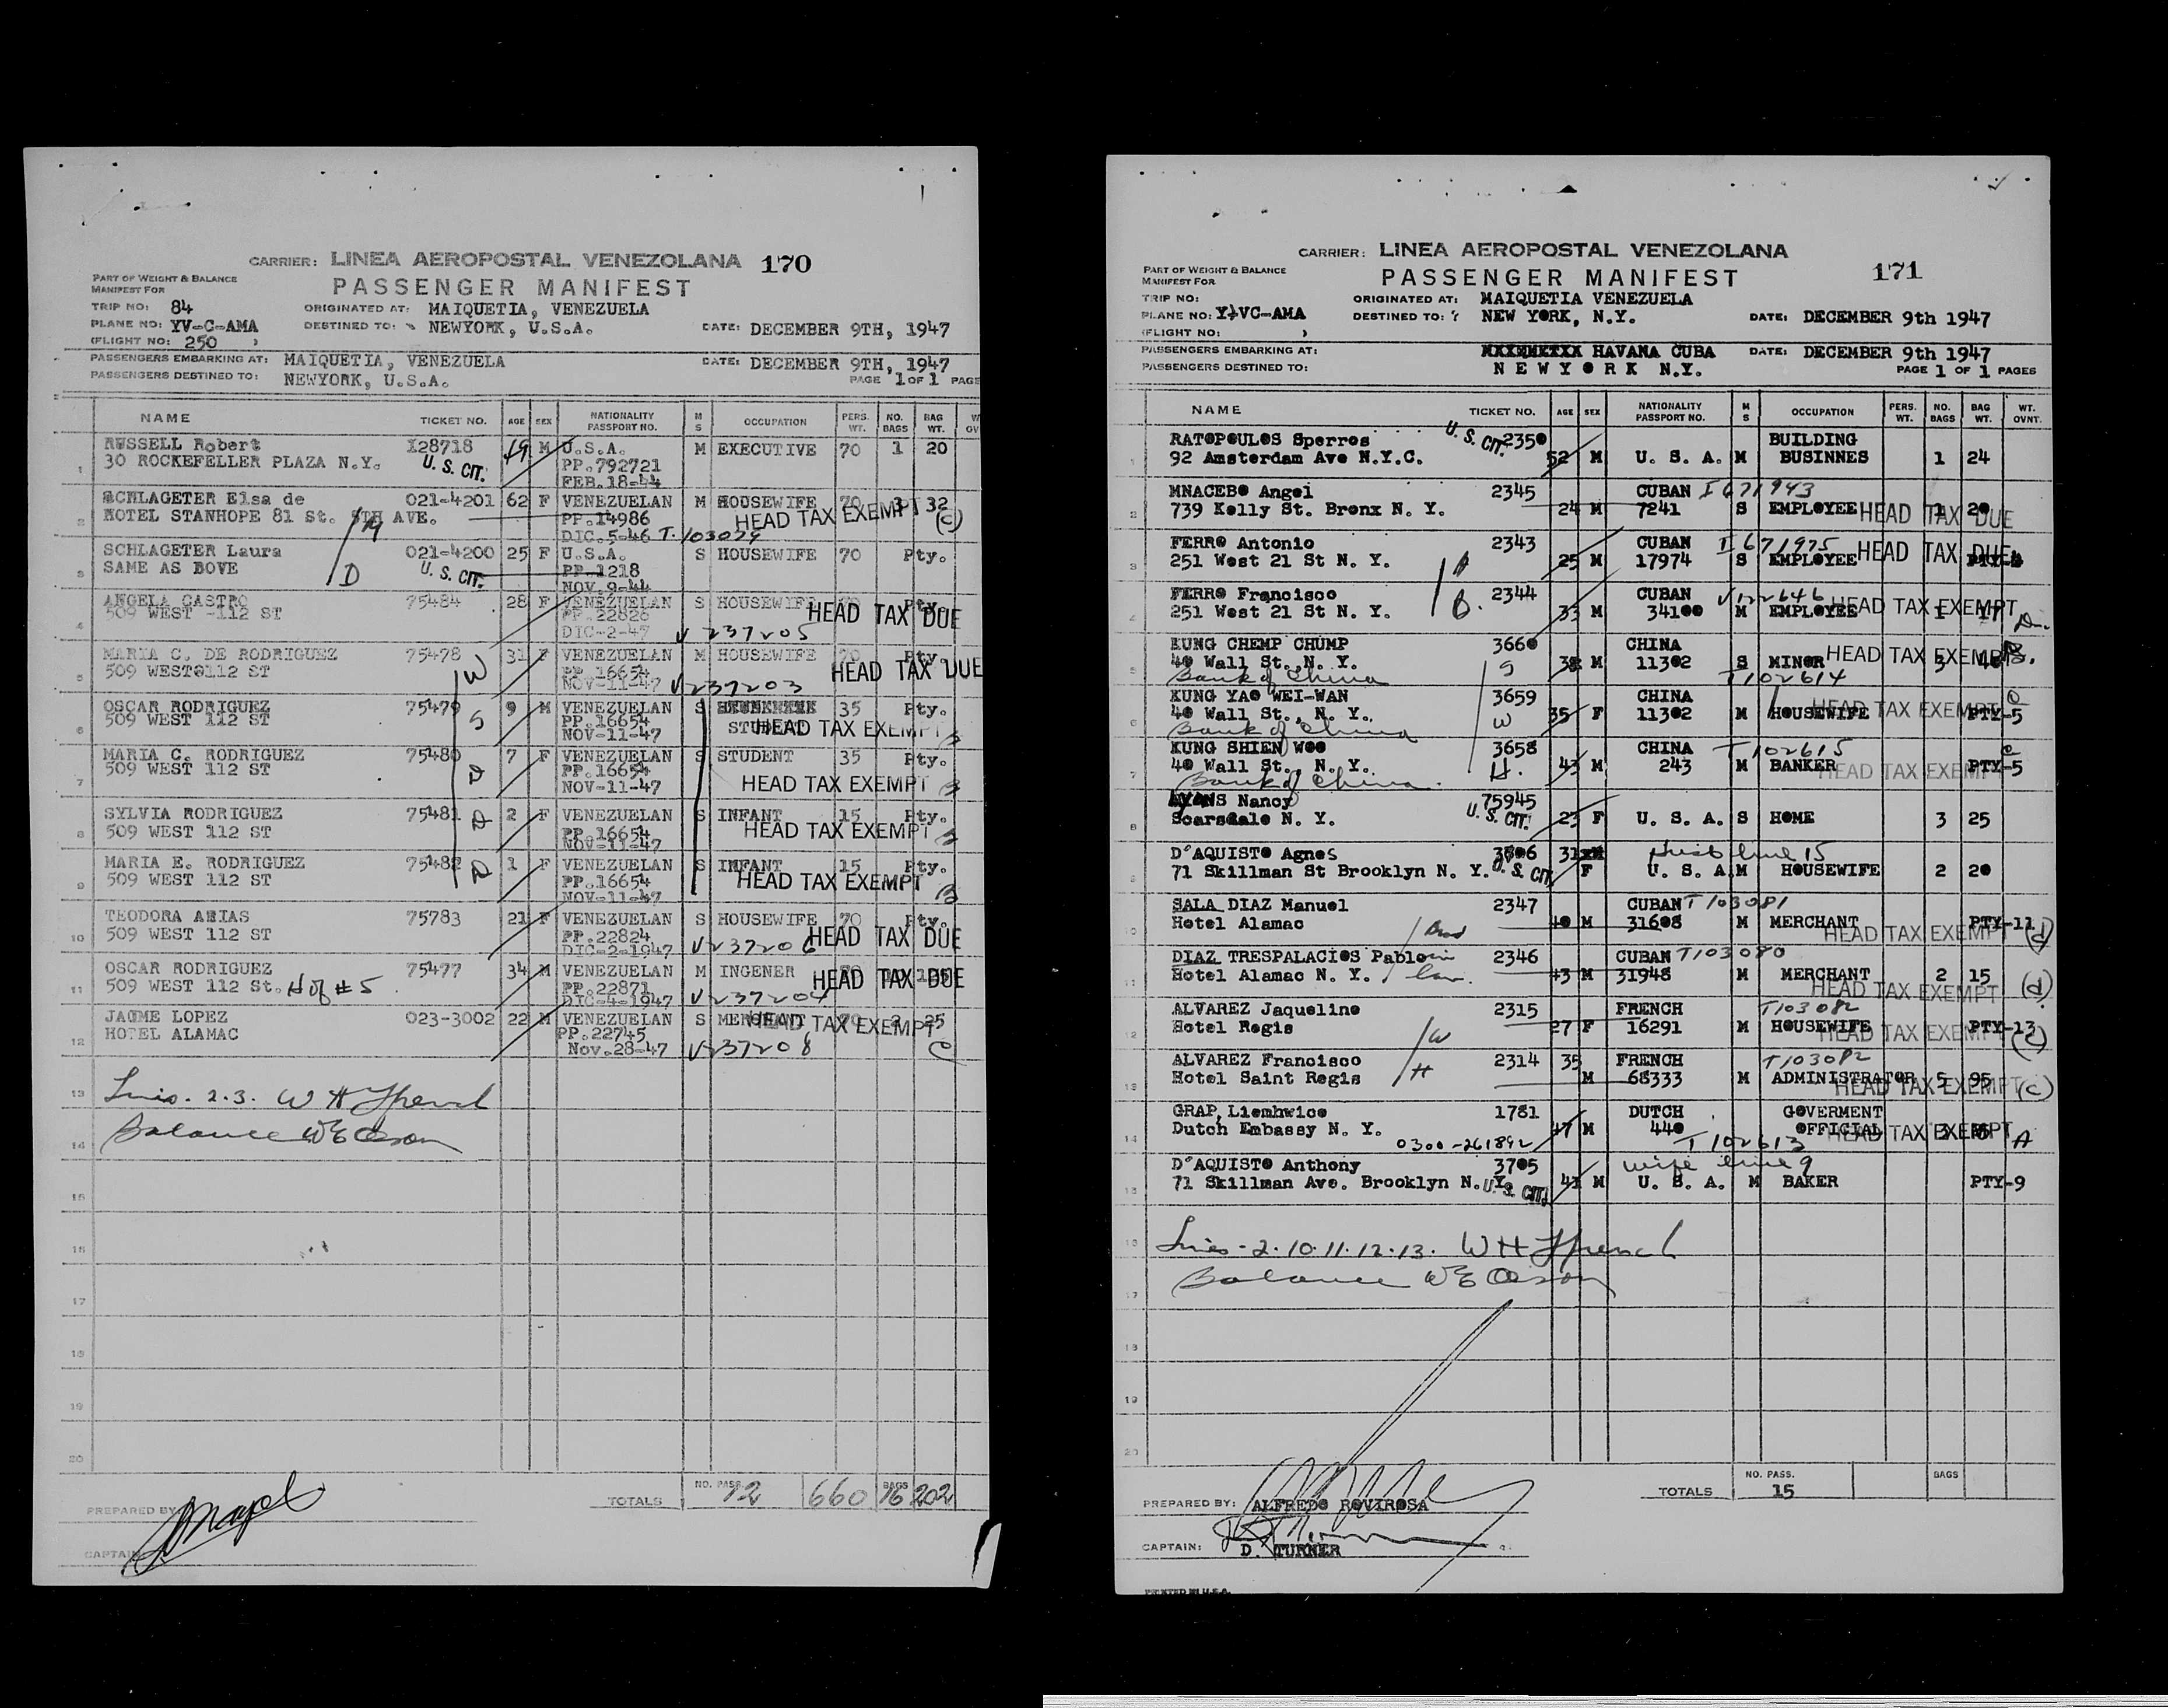 CARRIER: LINEA AEROPOSTAL VENEZOLANA 170
PART OF WEIGHT & BALANCE
MANIFEST FOR
PASSENGER MANIFEST
TRIP NO: 84 ORIGINATED AT: MAIQUETIA, VENEZUELA
PLANE NO: YV-C-AMA DESTINED TO: NEWYORK, U.S.A. DATE: DECEMBER 9TH, 1947
(FLIGHT NO: 250 )
PASSENGERS EMBARKING AT: MAIQUETIA, VENEZUELA DATE: DECEMBER 9TH, 1947
PASSENGERS DESTINED TO: NEWYORK, U.S.A. PAGE 1 OF 1 PAGE
NAME TICKET NO. AGE SEX NATIONALITY PASSPORT NO. M S OCCUPATION PERS. WT. NO. BAGS BAG WT.
1 RUSSELL Robert I28718 49 M U.S.A. M EXECUTIVE 70 1 20
30 ROCKEFELLER PLAZA N.Y. U. S. CIT. PP.792721
FEB.18-44
2 SCHLAGETER Elsa de 021-4201 62 F VENEZUELAN M HOUSEWIFE 70 3 32
HOTEL STANHOPE 81 St. 5TH AVE. PP.14986 HEAD TAX EXEMPT (C)
DIC.5-46 T-103079
3 SCHLAGETER Laura 021-4200 25 F U.S.A. S HOUSEWIFE 70 Pty.
SAME AS BOVE D U. S. CIT. PP.1218
NOV.9-44
4 ANGELA CASTRO 75484 28 F VENEZUELAN S HOUSEWIFE 70 Pty.
509 WEST -112 ST PP.22826 HEAD TAX DUE
DIC-2-47 V237205
5 MARIA C. DE RODRIGUEZ 75478 31 F VENEZUELAN M HOUSEWIFE 70 Pty.
509 WEST@112 ST W PP 16654 HEAD TAX DUE
NOV-11-47 V237203
6 OSCAR RODRIGUEZ 75479 9 M VENEZUELAN S 35 Pty.
509 WEST 112 ST S PP.16654 STUDENT HEAD TAX EXEMPT
NOV-11-47
7 MARIA C. RODRIGUEZ 75480 7 F VENEZUELAN S STUDENT 35 Pty.
509 WEST 112 ST D PP.16654
NOV-11-47 HEAD TAX EXEMPT B
8 SYLVIA RODRIGUEZ 75481 2 F VENEZUELAN S INFANT 15 Pty.
509 WEST 112 ST D PP.16654 HEAD TAX EXEMPT
NOV-11-47
9 MARIA E. RODRIGUEZ 75482 1 F VENEZUELAN S INFANT 15 Pty.
509 WEST 112 ST D PP.16654 HEAD TAX EXEMPT B
NOV-11-47
10 TEODORA ARIAS 75783 21 F VENEZUELAN S HOUSEWIFE 70 Pty.
509 WEST 112 ST PP.22824 HEAD TAX DUE
DIC-2-1947 V237206
11 OSCAR RODRIGUEZ 75477 34 M VENEZUELAN M INGENER
509 WEST 112 St. H of #5 PP.22871 HEAD TAX DUE
DIC-4-1947 V237204
12 JAOME LOPEZ 023-3002 22 M VENEZUELAN S MERCHANT 70 2 25
HOTEL ALAMAC PP.22745 HEAD TAX EXEMPT
Nov.28-47 V237208 C
13 Lines. 2.3. W H Ffrench
14 Balance W E Olson
15
16
17
18
19
20
TOTALS NO. PASS. 12 660 BAGS 16 202
PREPARED BY:
CAPTAIN:
CARRIER: LINEA AEROPOSTAL VENEZOLANA 171
PART OF WEIGHT & BALANCE
MANIFEST FOR
PASSENGER MANIFEST
TRIP NO: ORIGINATED AT: MAIQUETIA VENEZUELA
PLANE NO: YVVC-AMA DESTINED TO: NEW YORK, N.Y. DATE: DECEMBER 9th 1947
(FLIGHT NO: )
PASSENGERS EMBARKING AT: HAVANA CUBA DATE: DECEMBER 9th 1947
PASSENGERS DESTINED TO: N E W Y O R K N.Y. PAGE 1 OF 1 PAGES
NAME TICKET NO. AGE SEX NATIONALITY PASSPORT NO. M S OCCUPATION PERS. WT. NO. BAGS BAG WT. WT. OVNT.
1 RATOPOULOS Sperros U. S. CIT. 2350 BUILDING
92 Amsterdam Ave N.Y.C. 52 M U. S. A. M BUSINNES 1 24
2 MNACEBO Angel 2345 CUBAN I671943
739 Kelly St. Bronx N. Y. 24 M 7241 S EMPLOYEE HEAD TAX DUE 1 20
3 FERRO Antonio 2343 CUBAN I671975
251 West 21 St N. Y. 25 M 17974 S EMPLOYEE HEAD TAX DUE
4 FERRO Francisco B. 2344 CUBAN V122646
251 West 21 St N. Y. 33 M 34100 M EMPLOYEE HEAD TAX EXEMPT 1 17
5 KUNG CHEMP CHUMP 3660 CHINA HEAD TAX EXEMPT
40 Wall St., N. Y. S 38 M 11302 S MINOR 3
Bank of China T102614
6 KUNG YAO WEI-WAN 3659 CHINA C
40 Wall St., N. Y., W 35 F 11302 M HOUSEWIFE HEAD TAX EXEMPT PTY-5
Bank of China
7 KUNG SHIEN WOO 3658 CHINA T102615 C
40 Wall St., N. Y. H. 43 M 243 M BANKER HEAD TAX EXEMPT PTY-5
Bank of China.
8 Nancy 75945
Scarsdale N. Y. U. S. CIT. 23 F U. S. A. S HOME 3 25
9 D'AQUISTO Agnes 3706 31 Husb line 15
71 Skillman St Brooklyn N. Y. U. S. CIT. F U. S. A. M HOUSEWIFE 2 20
10 SALA DIAZ Manuel 2347 CUBAN T103081
Hotel Alamac 40 M 31608 M MERCHANT PTY-11
HEAD TAX EXEMPT (d)
11 DIAZ TRESPALACIOS Pablo in 2346 CUBAN T103080
Hotel Alamac N. Y. law. 43 M 31948 M MERCHANT 2 15
HEAD TAX EXEMPT (d)
12 ALVAREZ Jaqueline 2315 FRENCH T103082
Hotel Regis W 27 F 16291 M HOUSEWIFE HEAD TAX EXEMPT PTY-13 (c)
13 ALVAREZ Francisco 2314 35 FRENCH T103082
Hotel Saint Regis H M 68333 M ADMINISTRATOR 5 95
HEAD TAX EXEMPT (c)
14 GRAP, Liemhwico 1781 DUTCH GOVERMENT
Dutch Embassy N. Y. 47 M 440 OFFICIAL HEAD TAX EXEMPT A
0300-261892 T102613
15 D'AQUISTO Anthony 3705 wife line 9
71 Skillman Ave. Brooklyn N. Y. U. S. CIT. 41 M U. S. A. M BAKER PTY-9
16 Lines-2.10.11.12.13. W H Ffrench
17 Balance W E Olson
18
19
20
TOTALS NO. PASS. 15 BAGS
PREPARED BY: ALFREDO ROVIROSA
CAPTAIN: D. TURNER
PRINTED IN U.S.A.